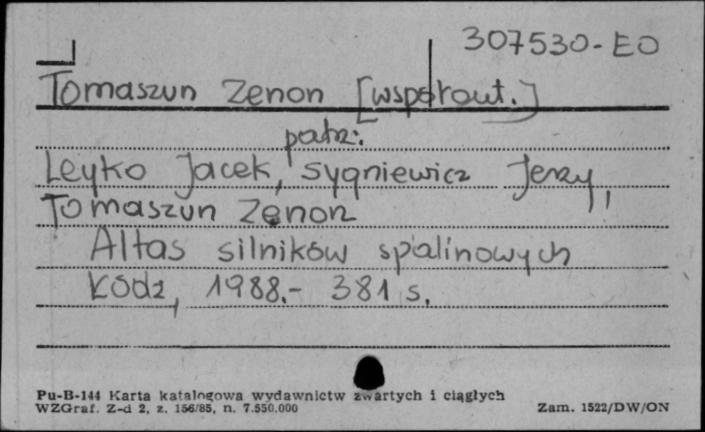 307530-EO
Tomaszun Zenon [współaut.]
patrz:
Leyko Jacek, Sygniewicz Jerzy,
Tomaszun Zenon
Altas silników spalinowych
Łódź, 1988.- 381 s.
Pu-B-144 Karta katalogowa wydawnictw zwartych i ciągłych
WZGraf. Z-d 2, z. 156/85, n. 7.550.000
Zam. 1522/DW/ON